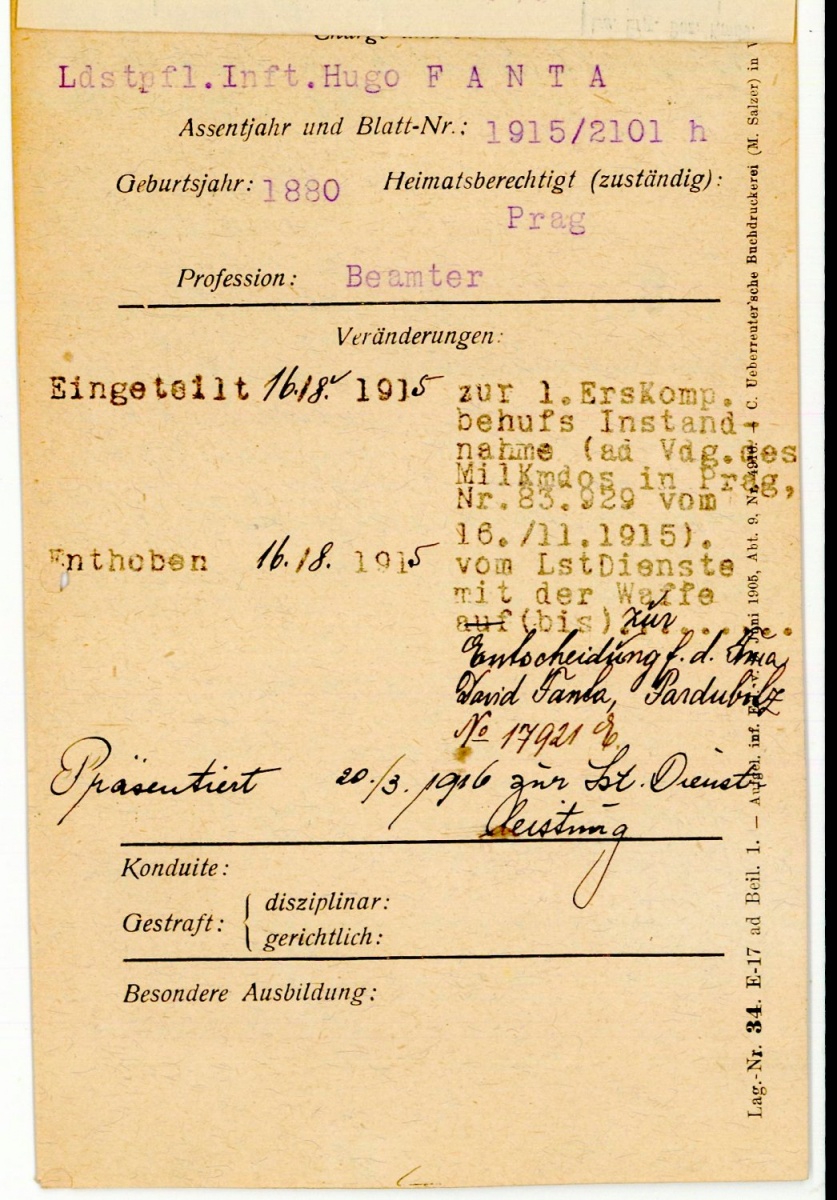 Ldstpfl.Inft.Hugo F A N T A
Assentjahr und Blatt-Nr.: 1915/2101 h
Geburtsjahr: 1880 Heimatsberechtigt (zuständig):
Prag
Profession: Beamter
Veränderungen:
Eingeteilt 16./8. 1915 zur 1.ErsKomp.
behufs Instand-
nahme (ad Vdg.des
MilKmdos in Prag,
Nr.83.929 vom
16./11.1915).
Enthoben 16./8. 1915 vom LstDienste
mit der Waffe
auf(bis) zur
Entscheidung f. d. Fma
David Fanta, Pardubitz
No 17921 E
Präsentiert 20./3. 1916 zur Lst. Dienst-
leistung
Konduite:
Gestraft: disziplinar:
gerichtlich:
Besondere Ausbildung:
Lag.-Nr. 34. E-17 ad Beil. 1. — 1905, Abt. 9, C. Ueberreuter'sche Buchdruckerei (M. Salzer) in